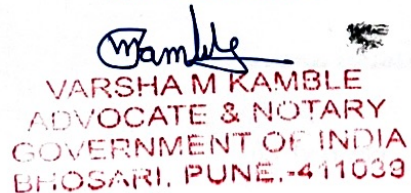 VARSHA M KAMBLE
ADVOCATE & NOTARY
GOVERNMENT OF INDIA
BHOSARI, PUNE,-411039